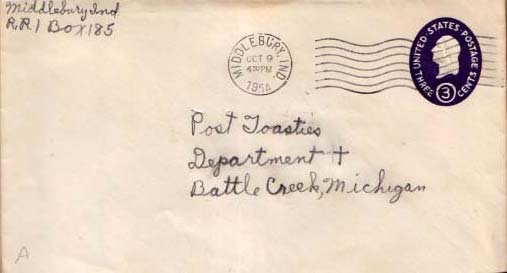 Middlebury Ind.
R.R. 1 Box 185
MIDDLEBURY, IND.
OCT 9
4 30 PM
1954
UNITED·STATES·POSTAGE
THREE 3 CENTS
Post Toasties
Department +
Battle Creek, Michigan
A